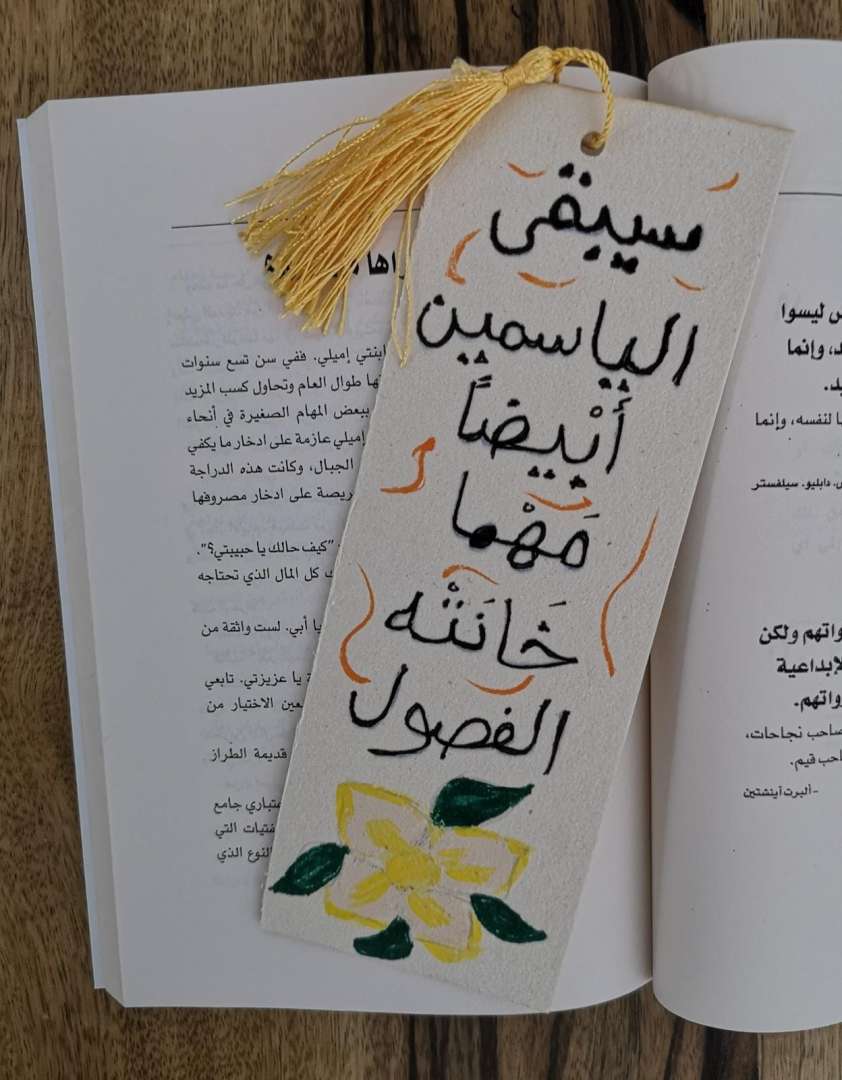 سيبقى
الياسمين
أَبْيضاً
مَهْما
خَانَتْه
الفصول
ابنتي إميلي. ففي سن تسع سنوات
طوال العام وتحاول كسب المزيد
ببعض المهام الصغيرة في أنحاء
إميلي عازمة على ادخار ما يكفي
الجبال، وكانت هذه الدراجة
على ادخار مصروفها
"كيف حالك يا حبيبتي؟".
كل المال الذي تحتاجه
يا أبي. لست واثقة من
يا عزيزتي. تابعي
الاختيار من
قديمة الطراز
جامع
التي
النوع الذي
ليسوا
وإنما
لنفسه، وإنما
دابليو. سيلفستر
ولكن
صاحب نجاحات،
صاحب قيم.
-ألبرت آينشتين